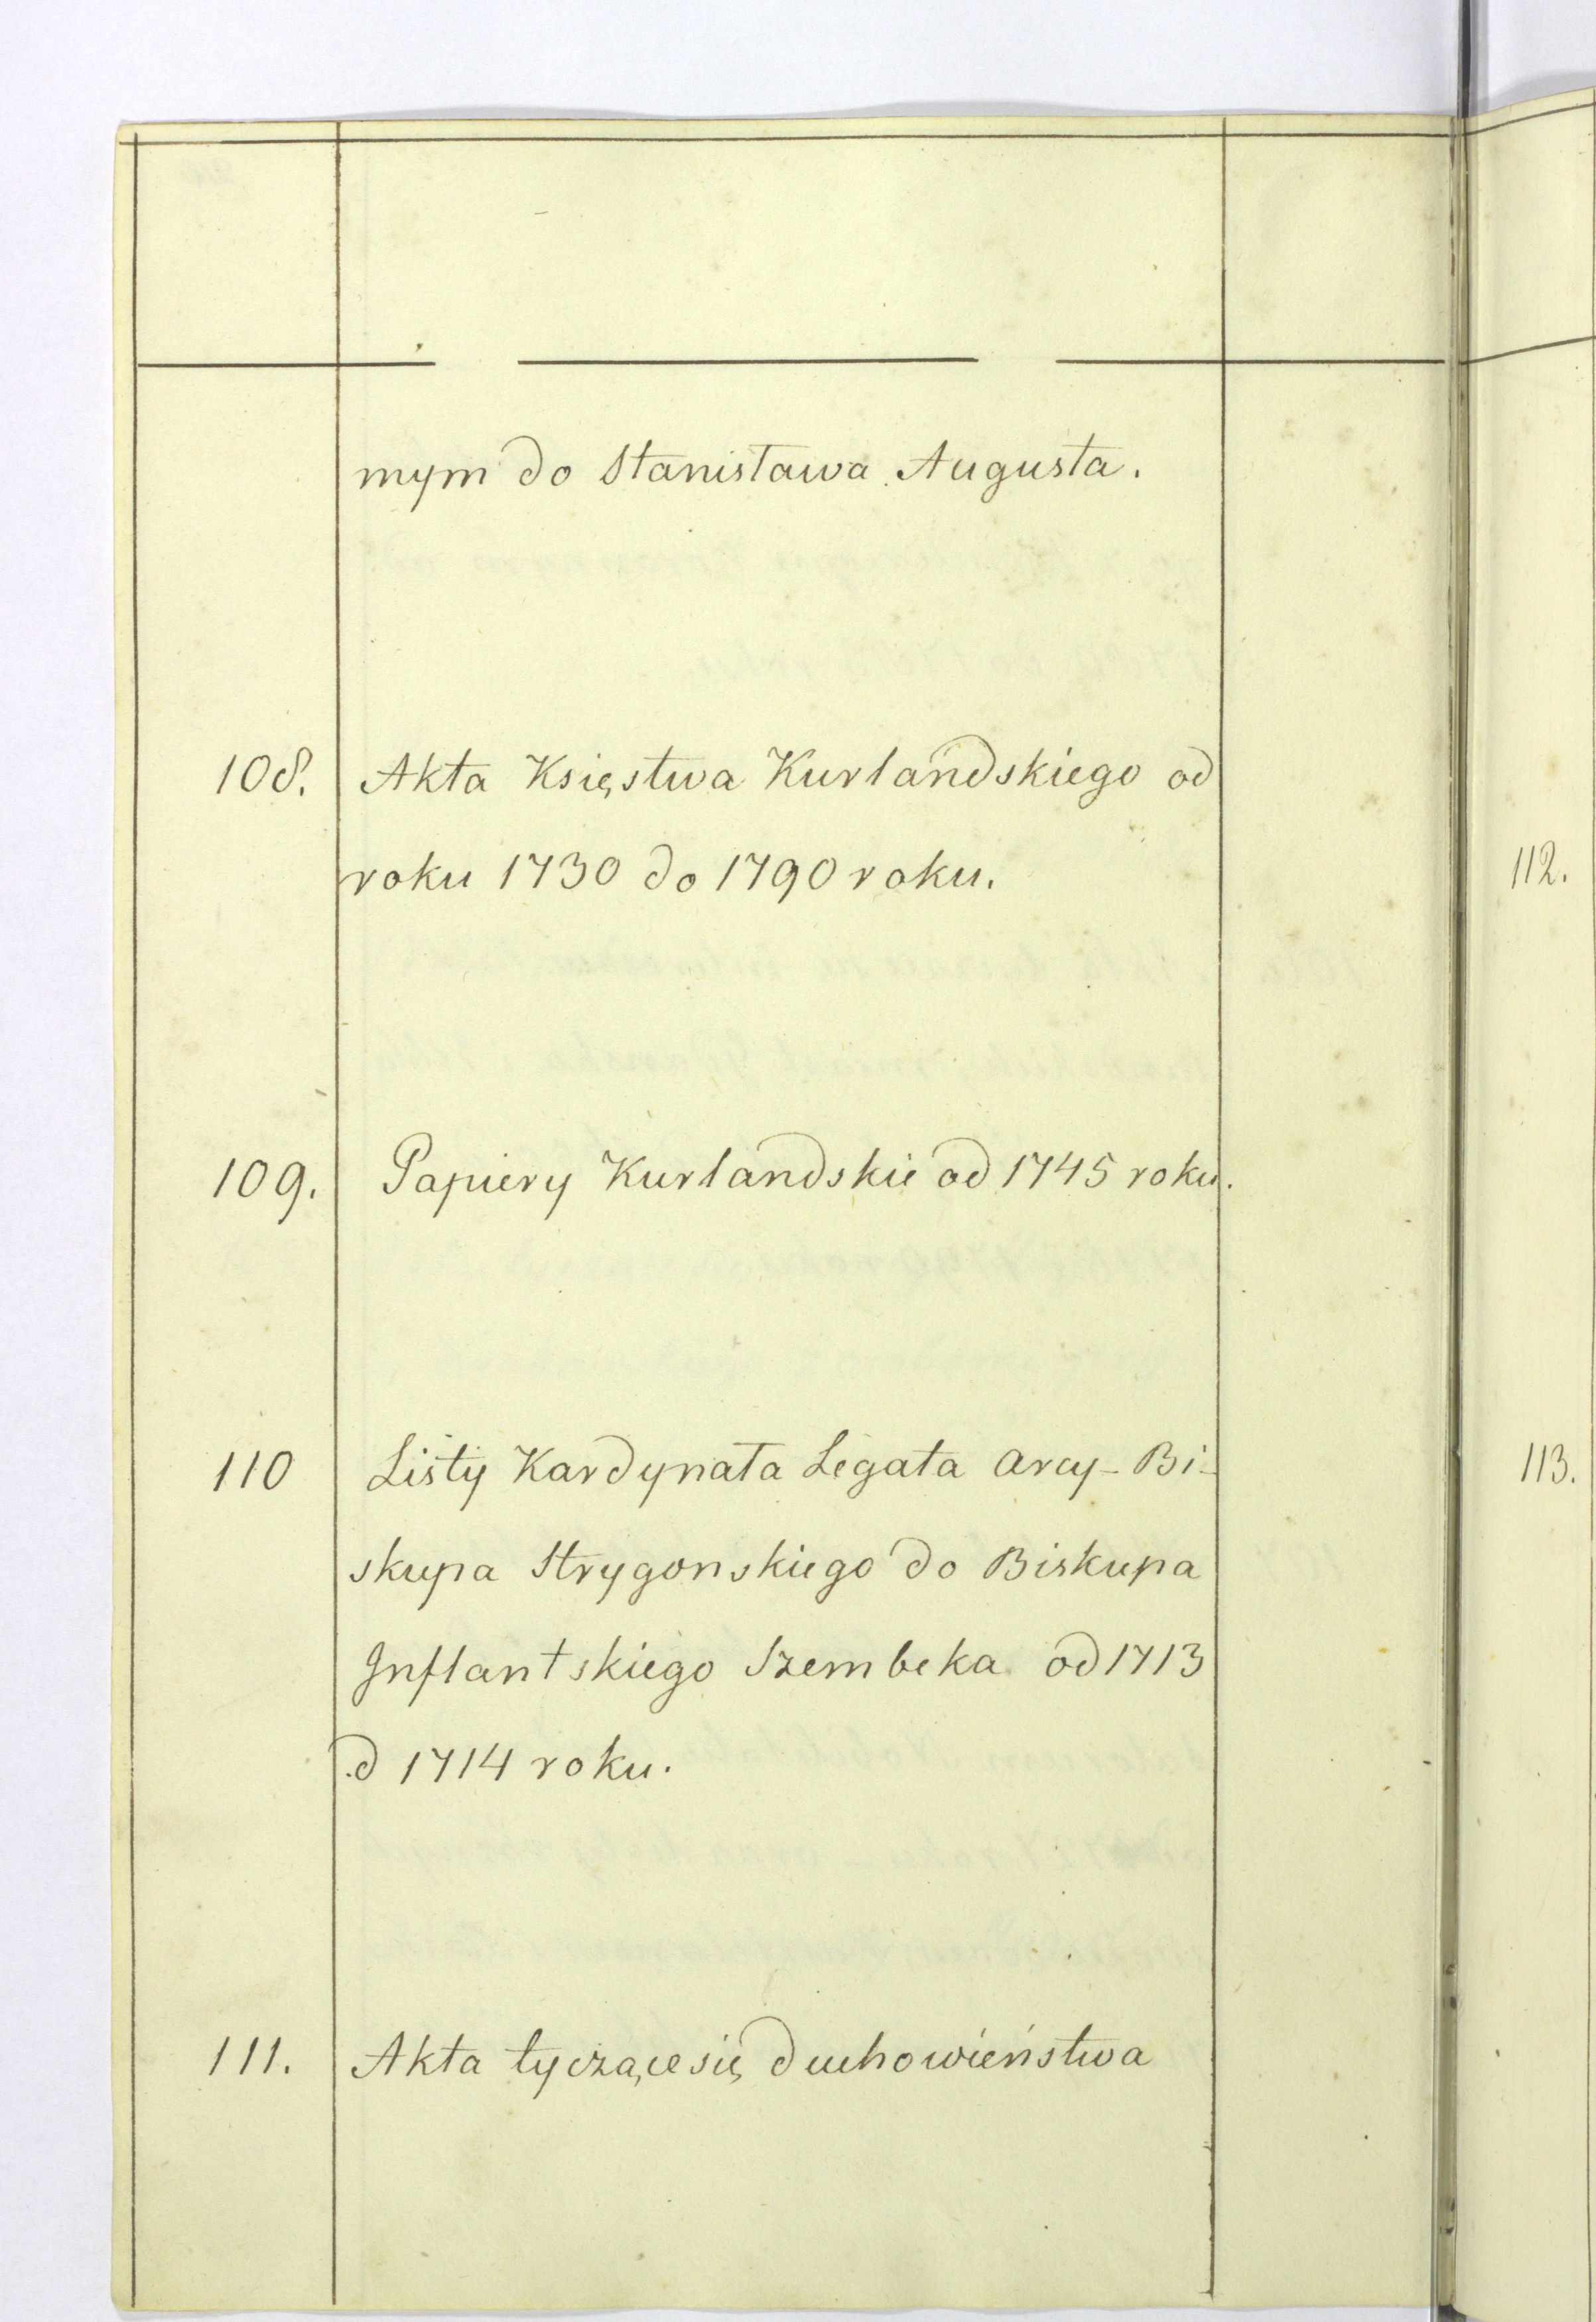 mym do Stanisława Augusta.
108. Akta Księstwa Kurlandskiego od
roku 1730 do 1790 roku.
109. Papiery Kurlandskie od 1745 roku.
110 Listy Kardynała Legata Arcy-Bi-
skupa Strygonskiego do Biskupa
Inflantskiego Szembeka od 1713
d 1714 roku.
111. Akta tyczące się duchowieństwa
112.
113.